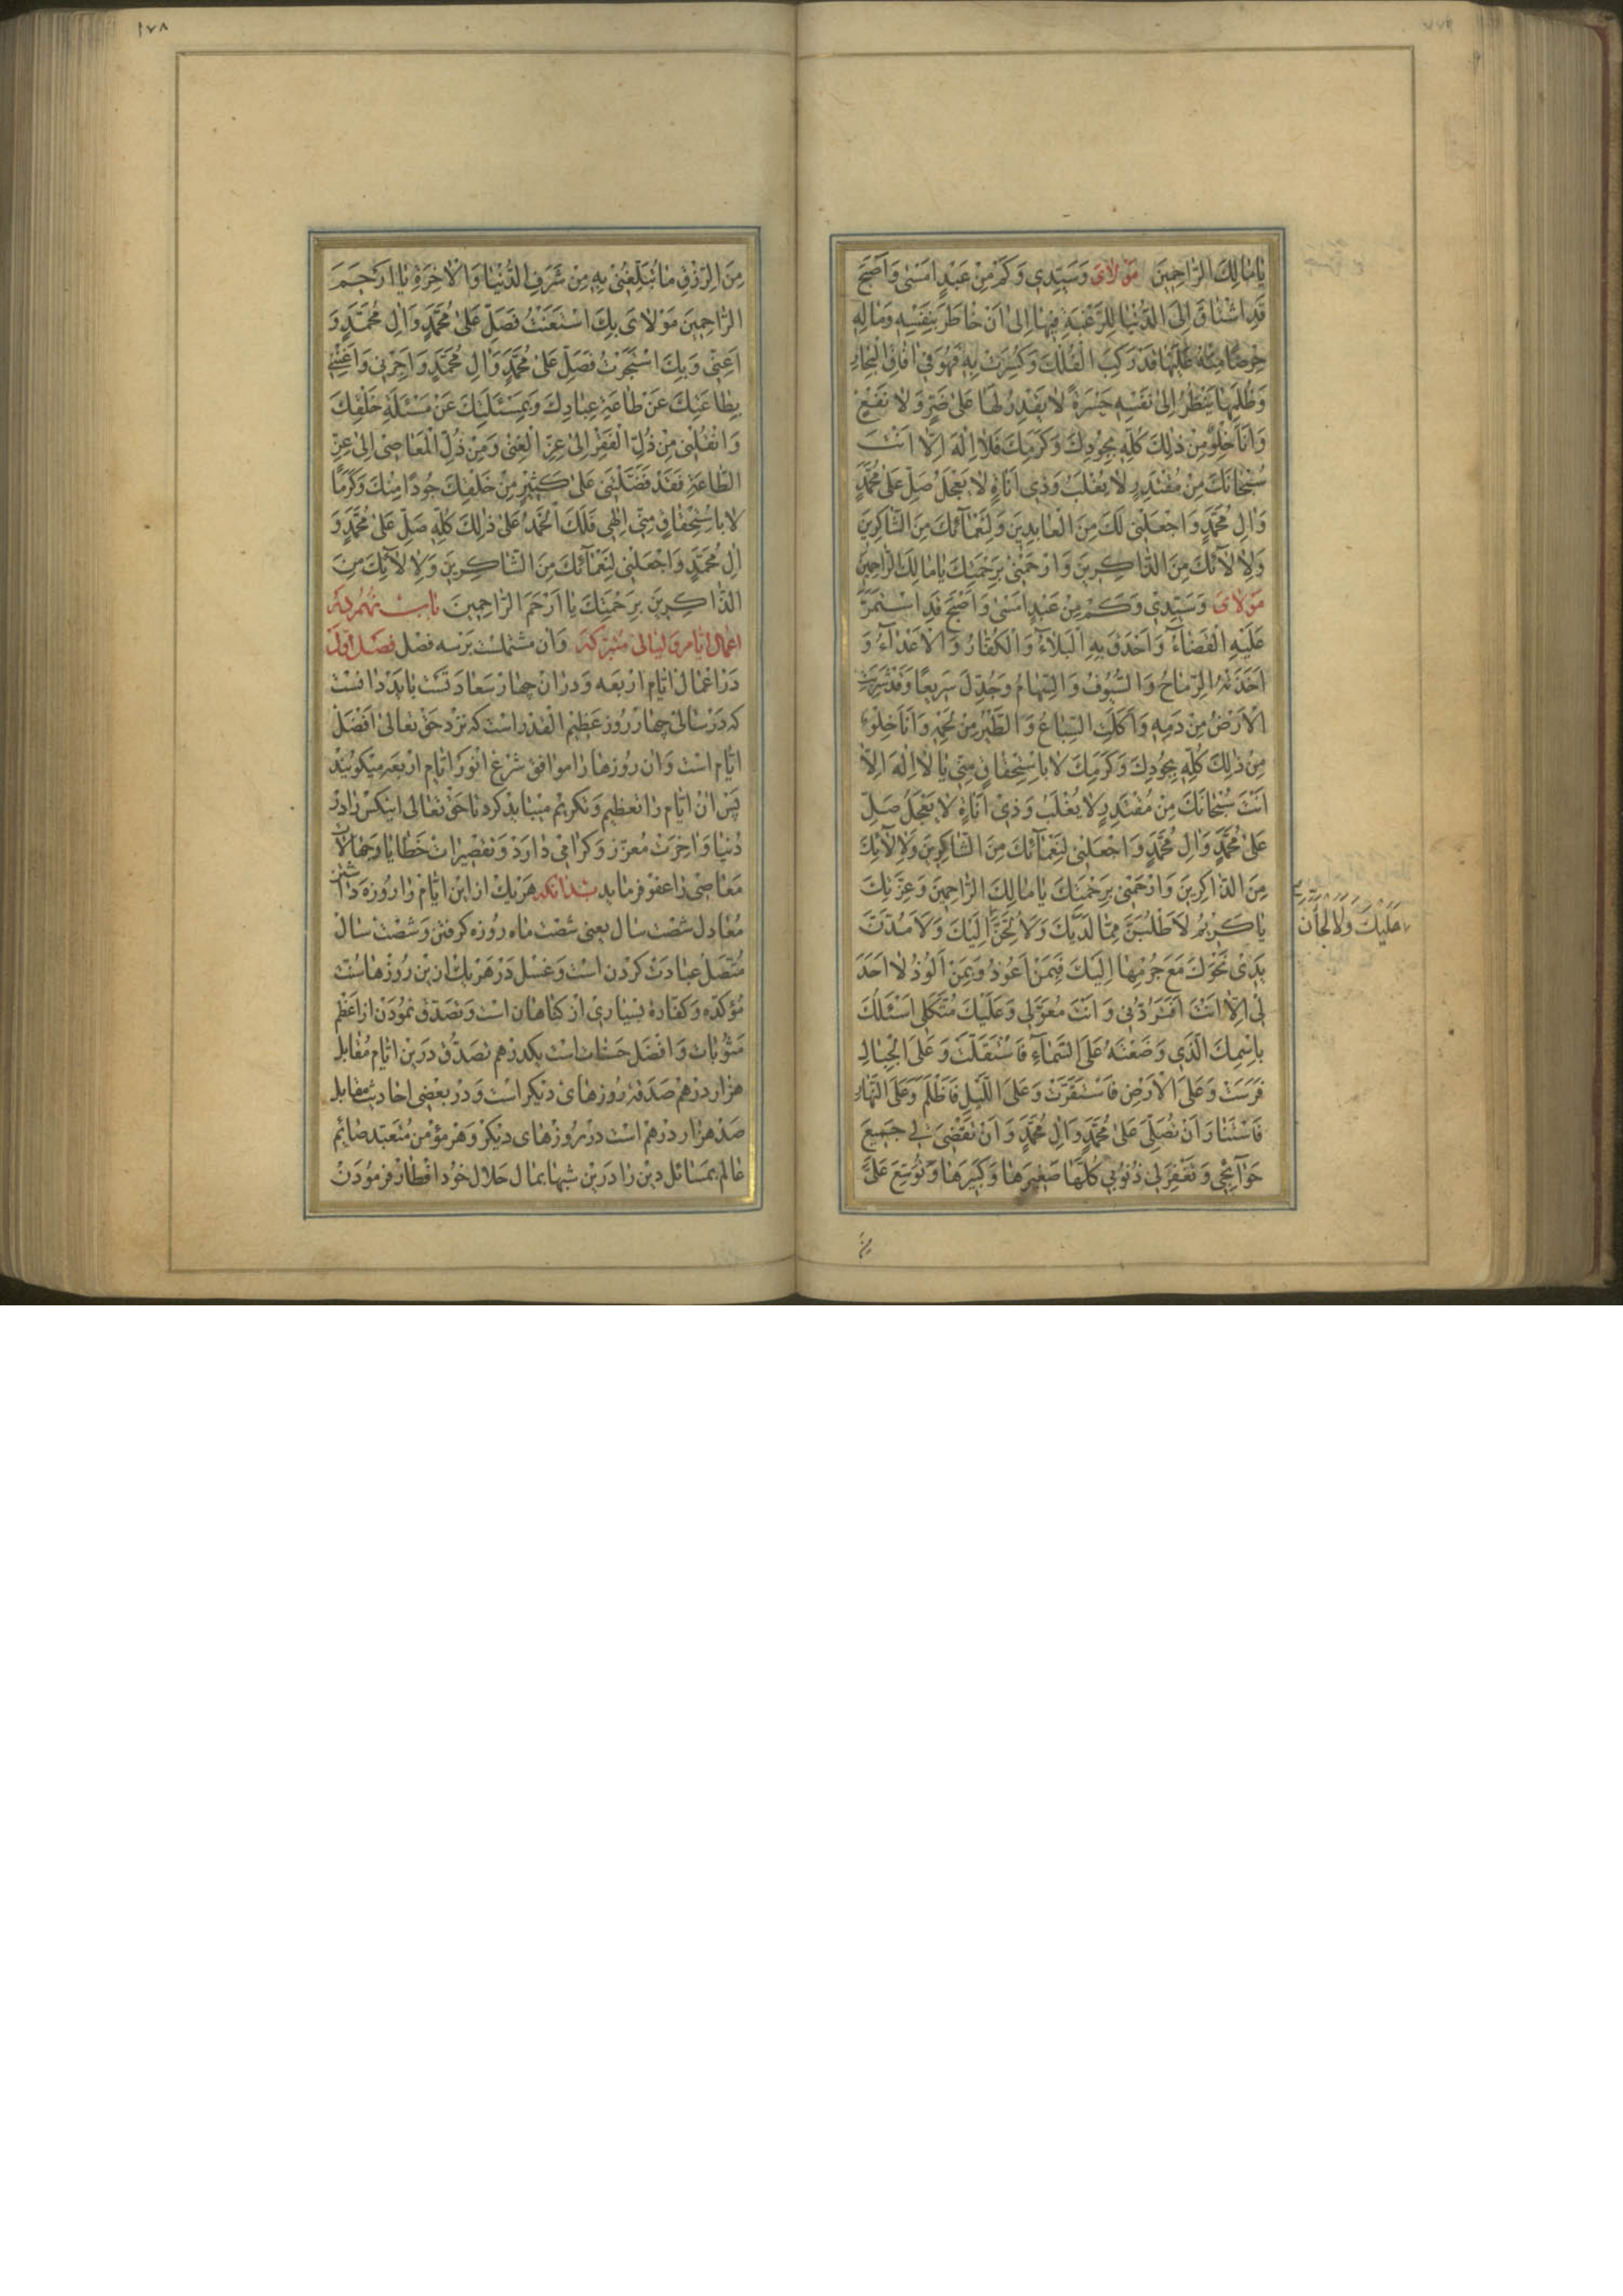 يا مالِكَ الرّاحِمينَ مَوْلايَ وَسَيِّدي وَكَمْ مِنْ عَبْدٍ اَمْسى وَاَصْبَحَ
قَدِ اشْتاقَ اِلَى الدُّنْيا لِلرَّغْبَةِ فيها اِلى اَنْ خاطَرَ بِنَفْسِهِ وَمالِهِ
حِرْصًا مِنْهُ عَلَيْها قَدْ رَكِبَ الْفُلْكَ وَكُسِرَتْ بِهِ فَهُوَ في افاقِ الْبِحارِ
وَظُلَمِها يَنْظُرُ اِلى نَفْسِهِ حَسْرَةً لا يَقْدِرُ لَها عَلى ضَرٍّ وَلا نَفْعٍ
وَاَنَا خِلْوٌ مِنْ ذلِكَ كُلِّهِ بِجُودِكَ وَكَرَمِكَ فَلا اِلهَ اِلّا اَنْتَ
سُبْحانَكَ مِنْ مُقْتَدِرٍ لا يُغْلَبُ وَذي اَناةٍ لا يَعْجَلُ صَلِّ عَلى مُحَمَّدٍ
وَالِ مُحَمَّدٍ وَاجْعَلْني لَكَ مِنَ الْعابِدينَ وَلِنَعْمآئِكَ مِنَ الشّاكِرينَ
وَلِالآئِكَ مِنَ الذّاكِرينَ وَارْحَمْني بِرَحْمَتِكَ يا مالِكَ الرّاحِمينَ
مَوْلايَ وَسَيِّدي وَكَمْ مِنْ عَبْدٍ اَمْسى وَاَصْبَحَ قَدِ اسْتَمَرَّ
عَلَيْهِ الْقَضآءُ وَاَحْدَقَ بِهِ الْبَلآءُ وَالْكُفّارُ وَالْاَعْدآءُ وَ
اَخَذَتْهُ الرِّماحُ وَالسُّيُوفُ وَالسِّهامُ وَجُدِّلَ سَريعًا وَقَدْ شَرِبَتِ
الْاَرْضُ مِنْ دَمِهِ وَاَكَلَتِ السِّباعُ وَالطَّيْرُ مِنْ لَحْمِهِ وَاَنَا خِلْوٌ
مِنْ ذلِكَ كُلِّهِ بِجُودِكَ وَكَرَمِكَ لا بِاسْتِحْقاقٍ مِنّي يا لا اِلهَ اِلّا
اَنْتَ سُبْحانَكَ مِنْ مُقْتَدِرٍ لا يُغْلَبُ وَذي اَناةٍ لا يَعْجَلُ صَلِّ
عَلى مُحَمَّدٍ وَالِ مُحَمَّدٍ وَاجْعَلْني لِنَعْمآئِكَ مِنَ الشّاكِرينَ وَلِالآئِكَ
مِنَ الذّاكِرينَ وَارْحَمْني بِرَحْمَتِكَ يا مالِكَ الرّاحِمينَ وَعِزَّتِكَ
يا كَريمُ لَاَطْلُبَنَّ مِمّا لَدَيْكَ وَلَاُلِحَّنَّ اِلَيْكَ وَلَامُدَّنَّ
عَلَيْكَ وَلَاُلِجَأَنَّ
يَدي نَحْوَكَ مَعَ جُرْمِها اِلَيْكَ فَبِمَنْ اَعُوذُ وَبِمَنْ اَلُوذُ لا اَحَدَ
لي اِلّا اَنْتَ اَفَتَرُدُّني وَاَنْتَ مُعَوَّلي وَعَلَيْكَ مُتَّكَلي اَسْئَلُكَ
بِاسْمِكَ الَّذي وَضَعْتَهُ عَلَى السَّمآءِ فَاسْتَقَلَّتْ وَعَلَى الْجِبالِ
فَرَسَتْ وَعَلَى الْاَرْضِ فَاسْتَقَرَّتْ وَعَلَى اللَّيْلِ فَاَظْلَمَ وَعَلَى النَّهارِ
فَاسْتَنارَ اَنْ تُصَلِّيَ عَلى مُحَمَّدٍ وَالِ مُحَمَّدٍ وَاَنْ تَقْضِيَ لي جَميعَ
حَوآئِجي وَتَغْفِرَ لي ذُنُوبي كُلَّها صَغيرَها وَكَبيرَها وَتُوَسِّعَ عَلَيَّ
مِنَ
١٧٨
مِنَ الرِّزْقِ ما تُبَلِّغُني بِهِ مِنْ شَرَفِ الدُّنْيا وَالْاخِرَةِ يا اَرْحَمَ
الرّاحِمينَ مَوْلايَ بِكَ اسْتَعَنْتُ فَصَلِّ عَلى مُحَمَّدٍ وَالِ مُحَمَّدٍ وَ
اَعِنّي وَبِكَ اسْتَجَرْتُ فَصَلِّ عَلى مُحَمَّدٍ وَالِ مُحَمَّدٍ وَاَجِرْني وَاَغْنِني
بِطاعَتِكَ عَنْ طاعَةِ عِبادِكَ وَبِمَسْئَلَتِكَ عَنْ مَسْئَلَةِ خَلْقِكَ
وَانْقُلْني مِنْ ذُلِّ الْفَقْرِ اِلى عِزِّ الْغِنى وَمِنْ ذُلِّ الْمَعاصي اِلى عِزِّ
الطّاعَةِ فَقَدْ فَضَّلْتَني عَلى كَثيرٍ مِنْ خَلْقِكَ جُودًا مِنْكَ وَكَرَمًا
لا بِاسْتِحْقاقٍ مِنّي اِلهي فَلَكَ الْحَمْدُ عَلى ذلِكَ كُلِّهِ صَلِّ عَلى مُحَمَّدٍ وَ
الِ مُحَمَّدٍ وَاجْعَلْني لِنَعْمآئِكَ مِنَ الشّاكِرينَ وَلِالآئِكَ مِنَ
الذّاكِرينَ بِرَحْمَتِكَ يا اَرْحَمَ الرّاحِمينَ باب نهم در
اعمال ايام وليالى متبركه وان مشتملست بر سه فصل فصل اول
در اعمال ايام اربعه ودران چهار سعادتست بايد دانست
كه در سالى چهار روز عظيم القدر است كه نزد حق تعالى افضل
ايام است وان روزها را موافق شرع انور ايام اربعه ميكويند
پس ان ايام را تعظيم وتكريم ميبايد كرد تا حق تعالى اينكس را در
دنيا واخرت معزز وكرامى دارد وتقصيرات خطايا وجهالات
معاصى را عفو فرمايد بدانكه هر يك از اين ايام را روزه داشتن
معادل شصت سال يعنى شصت ماه روزه كرفتن وشصت سال
متصل عبادت كردن است وغسل در هر يك ازين روزها سنت
مؤكده وكفاره بسيارى از كناهان است وتصدق نمودن از اعظم
مثوبات وافضل حسنات است يكدرهم تصدق درين ايام مقابل
هزار درهم صدقه روزهاى ديكر است ودر بعضى احاديث مقابل
صد هزار درهم است در روزهاى ديكر وهر مؤمن متعبد صائم
عالم بمسائل دين را درين شبها بمال حلال خود افطار فرمودن